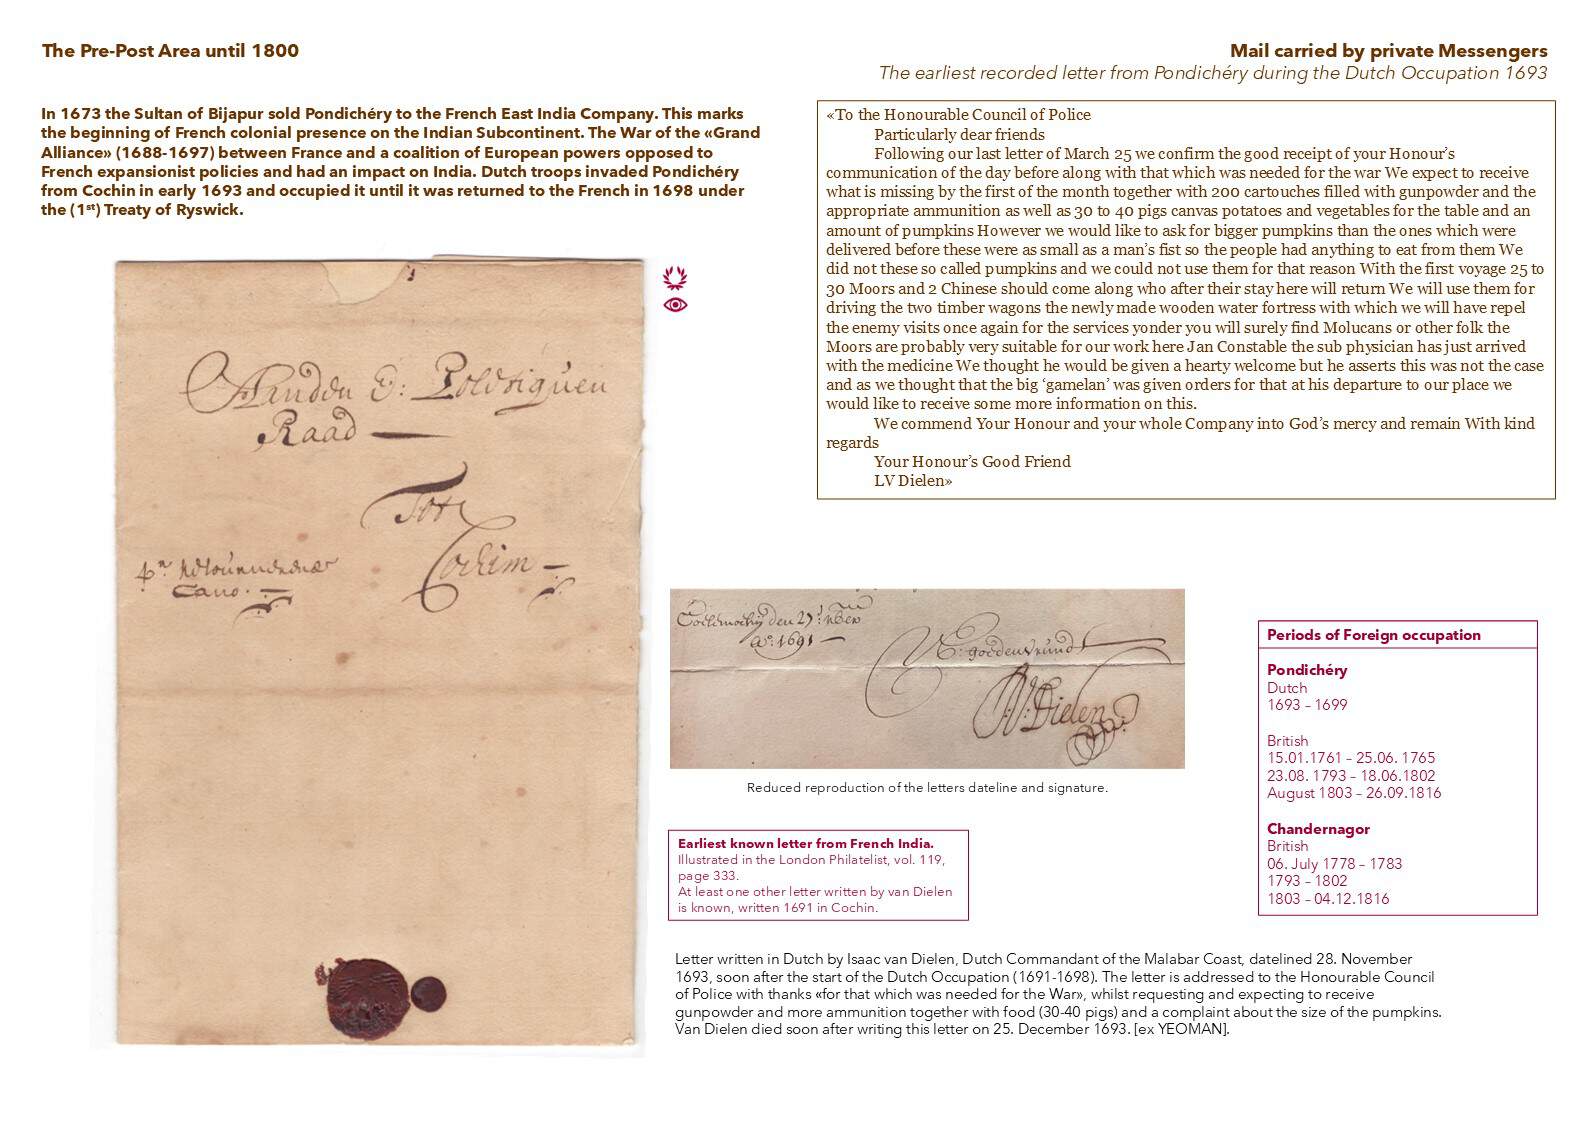 The Pre-Post Area until 1800
Mail carried by private Messengers
The earliest recorded letter from Pondichéry during the Dutch Occupation 1693
In 1673 the Sultan of Bijapur sold Pondichéry to the French East India Company. This marks
the beginning of French colonial presence on the Indian Subcontinent. The War of the «Grand
Alliance» (1688-1697) between France and a coalition of European powers opposed to
French expansionist policies and had an impact on India. Dutch troops invaded Pondichéry
from Cochin in early 1693 and occupied it until it was returned to the French in 1698 under
the (1st) Treaty of Ryswick.
«To the Honourable Council of Police
Particularly dear friends
Following our last letter of March 25 we confirm the good receipt of your Honour's
communication of the day before along with that which was needed for the war We expect to receive
what is missing by the first of the month together with 200 cartouches filled with gunpowder and the
appropriate ammunition as well as 30 to 40 pigs canvas potatoes and vegetables for the table and an
amount of pumpkins However we would like to ask for bigger pumpkins than the ones which were
delivered before these were as small as a man's fist so the people had anything to eat from them We
did not these so called pumpkins and we could not use them for that reason With the first voyage 25 to
30 Moors and 2 Chinese should come along who after their stay here will return We will use them for
driving the two timber wagons the newly made wooden water fortress with which we will have repel
the enemy visits once again for the services yonder you will surely find Molucans or other folk the
Moors are probably very suitable for our work here Jan Constable the sub physician has just arrived
with the medicine We thought he would be given a hearty welcome but he asserts this was not the case
and as we thought that the big 'gamelan' was given orders for that at his departure to our place we
would like to receive some more information on this.
We commend Your Honour and your whole Company into God's mercy and remain With kind
regards
Your Honour's Good Friend
LV Dielen»
Raad
Tot
Cochim
den 27
Ao: 1691
goeden vrund
V: Dielen
Reduced reproduction of the letters dateline and signature.
Earliest known letter from French India.
Illustrated in the London Philatelist, vol. 119,
page 333.
At least one other letter written by van Dielen
is known, written 1691 in Cochin.
Periods of Foreign occupation
Pondichéry
Dutch
1693 – 1699
British
15.01.1761 – 25.06. 1765
23.08. 1793 – 18.06.1802
August 1803 – 26.09.1816
Chandernagor
British
06. July 1778 – 1783
1793 – 1802
1803 – 04.12.1816
Letter written in Dutch by Isaac van Dielen, Dutch Commandant of the Malabar Coast, datelined 28. November
1693, soon after the start of the Dutch Occupation (1691-1698). The letter is addressed to the Honourable Council
of Police with thanks «for that which was needed for the War», whilst requesting and expecting to receive
gunpowder and more ammunition together with food (30-40 pigs) and a complaint about the size of the pumpkins.
Van Dielen died soon after writing this letter on 25. December 1693. [ex YEOMAN].